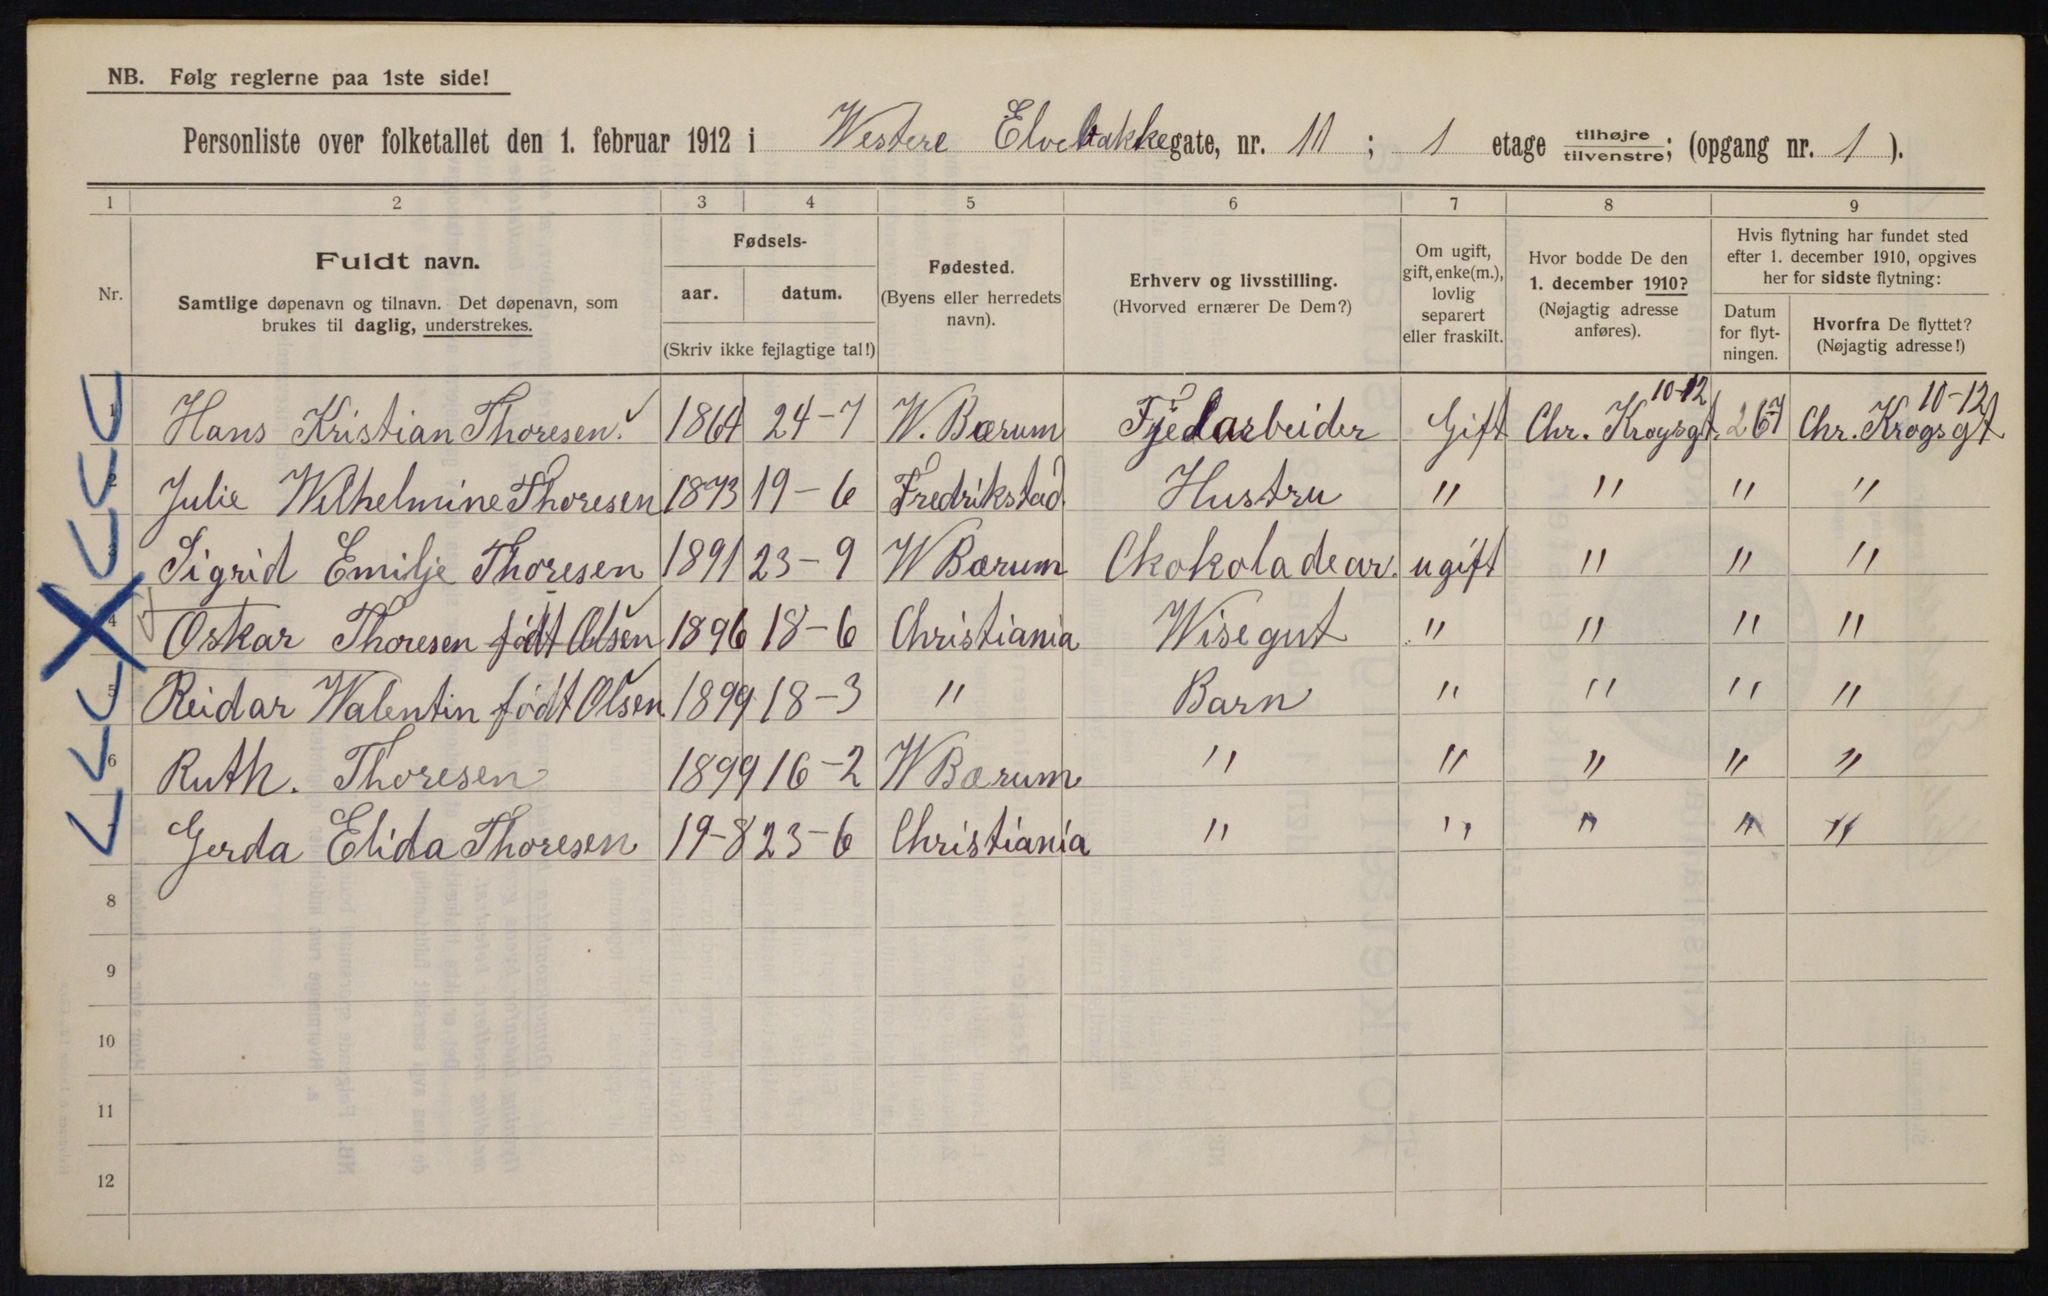 NB. Følg reglerne paa 1ste side!
Personliste over folketallet den 1. februar 1912 i Westere Elvebakkegate, nr. 11 ; 1 etage tilhøjre/tilvenstre; (opgang nr. 1 ).
1 2 3 4 5 6 7 8 9
Nr.
Fuldt navn.
Samtlige døpenavn og tilnavn. Det døpenavn, som
brukes til daglig, understrekes.
Fødsels-
aar. datum.
(Skriv ikke fejlagtige tal!)
Fødested.
(Byens eller herredets
navn).
Erhverv og livsstilling.
(Hvorved ernærer De Dem?)
Om ugift,
gift, enke(m.),
lovlig
separert
eller fraskilt.
Hvor bodde De den
1. december 1910?
(Nøjagtig adresse
anføres).
Hvis flytning har fundet sted
efter 1. december 1910, opgives
her for sidste flytning:
Datum
for flyt-
ningen.
Hvorfra De flyttet?
(Nøjagtig adresse!)
1 Hans Kristian Thoresen. 1864 24-7 W. Bærum Fjedarbeider Gift Chr. Krogsgt. 10-12 26 7 Chr. Krogsgt 10-12
2 Julie Wilhelmine Thoresen 1873 19-6 Fredrikstad Hustru " " " "
3 Sigrid Emilje Thoresen 1891 23-9 W Bærum Ckokoladear. ugift " " "
4 Oskar Thoresen født Olsen 1896 18-6 Christiania Wisegut " " " "
5 Reidar Walentin født Olsen 1899 18-3 " Barn " " " "
6 Ruth. Thoresen 1899 16-2 W Bærum " " " " "
Gerda Elida Thoresen 19-8 23-6 Christiania " " " " "
8
9
10
11
12